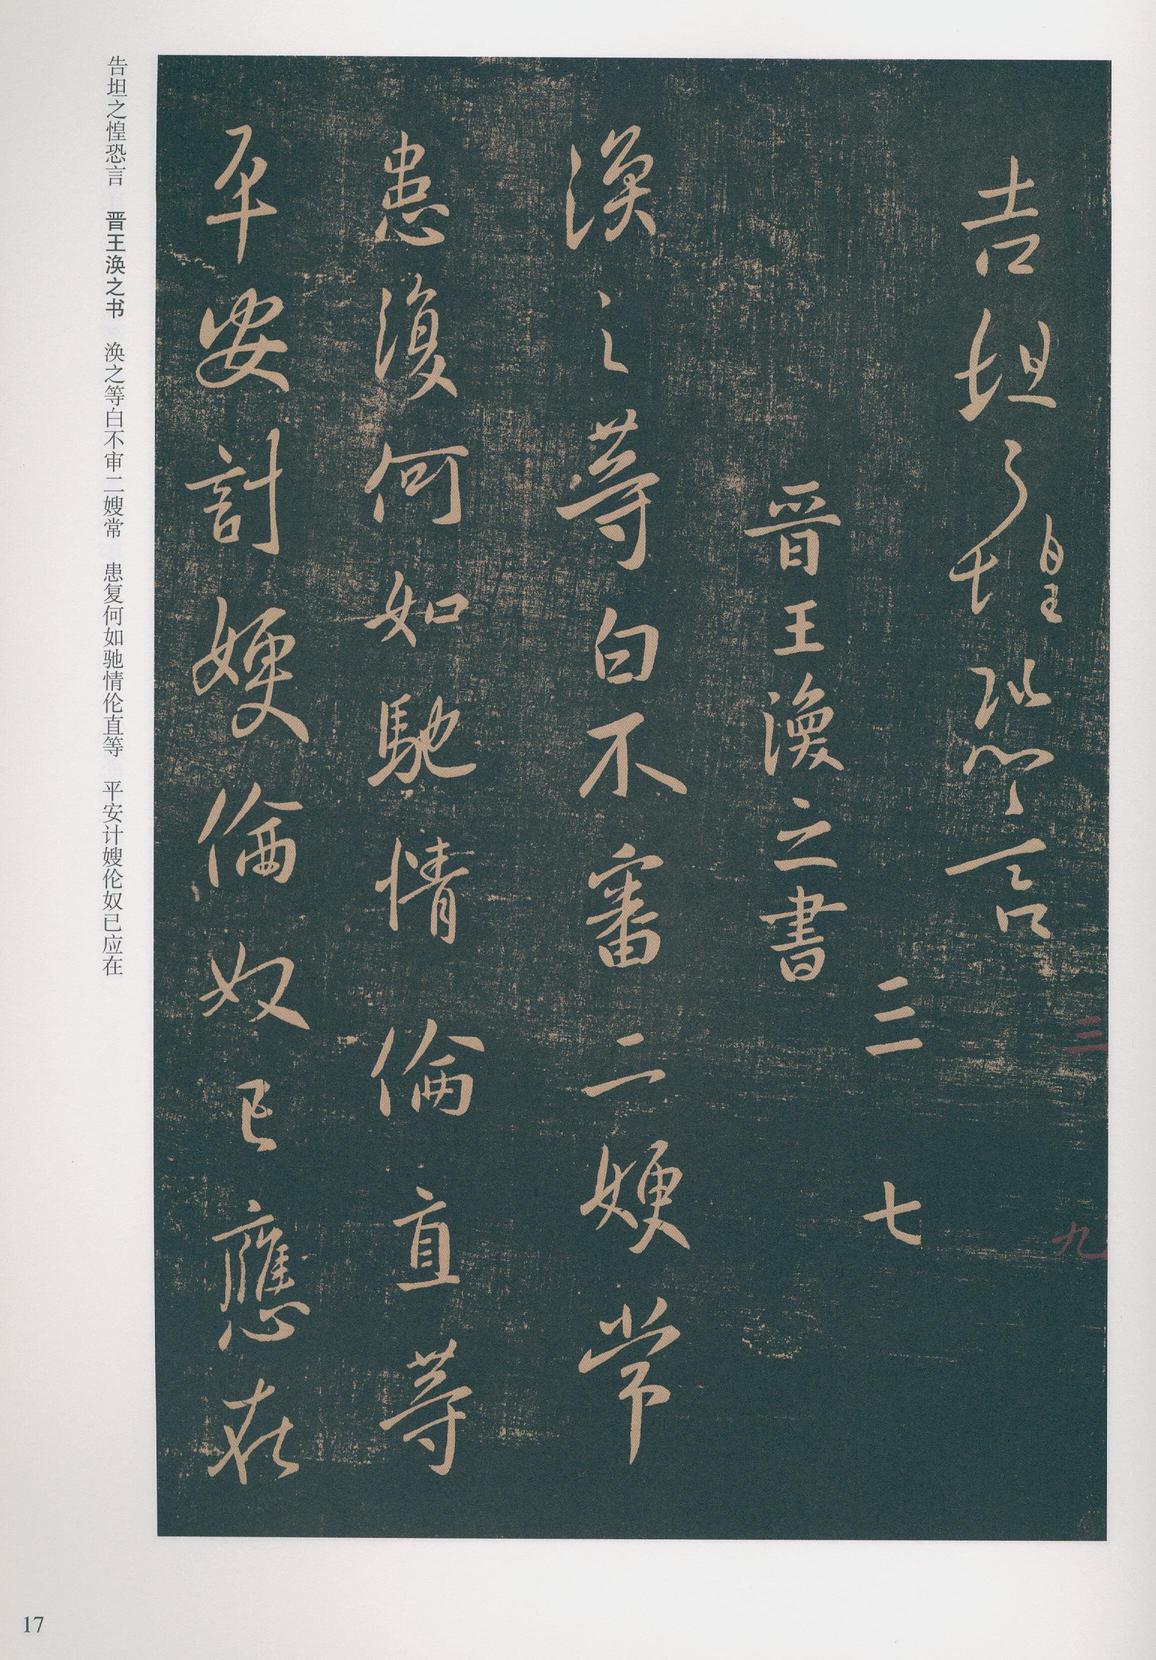 告坦之惶恐言
三 七
三 九
晋王渙之書
渙之等白不審二嫂常
患復何如馳情倫直等
平安計嫂倫奴已應在
告坦之惶恐言 晋王涣之书 涣之等白不审二嫂常 患复何如驰情伦直等 平安计嫂伦奴已应在
17